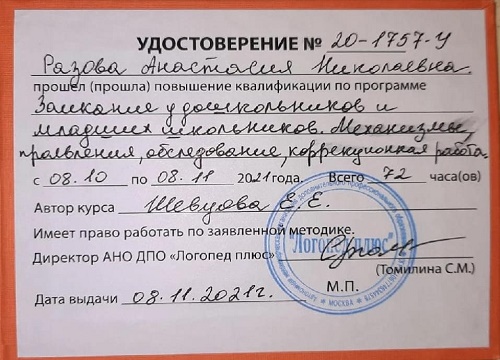 УДОСТОВЕРЕНИЕ № 20-1757-У
Разова Анастасия Николаевна
прошел (прошла) повышение квалификации по программе
Заикание у дошкольников и
младших школьников. Механизмы,
проявления, обследование, коррекционная работа.
с 08.10 по 08.11 2021года. Всего 72 часа(ов)
Автор курса Шевцова Е. Е.
Имеет право работать по заявленной методике.
Директор АНО ДПО «Логопед плюс»
(Томилина С.М.)
М.П.
Дата выдачи 08.11.2021г.
"Логопед плюс"
МОСКВА